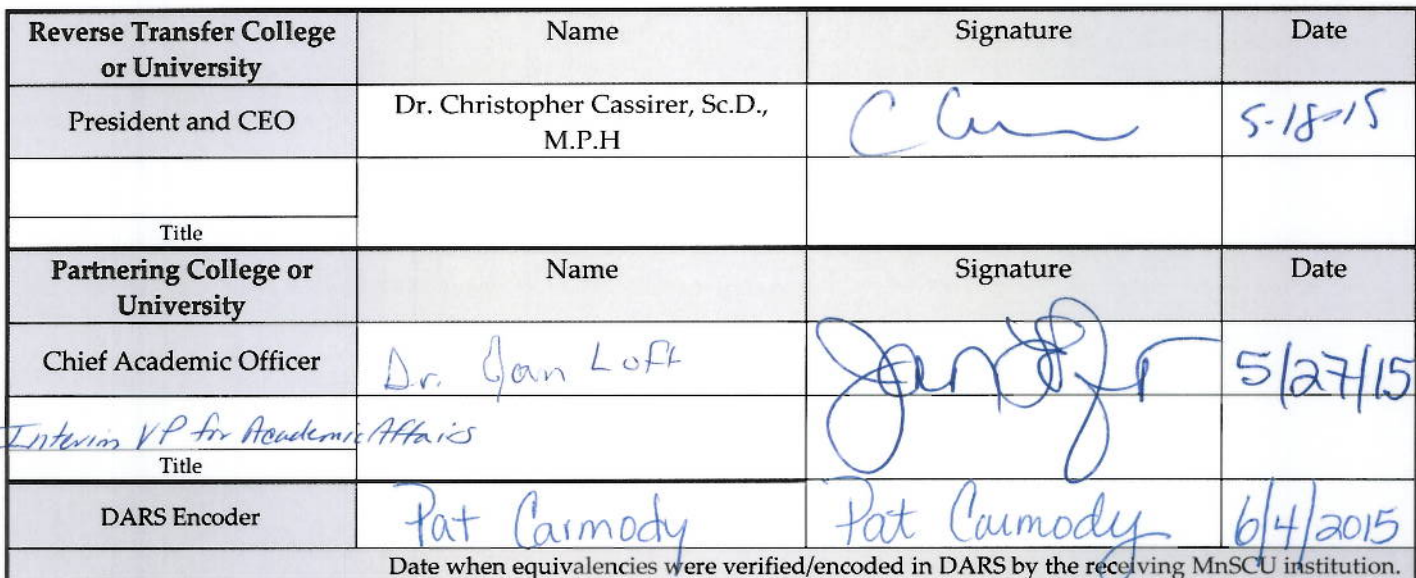 Reverse Transfer College or University Name Signature Date
President and CEO Dr. Christopher Cassirer, Sc.D., M.P.H 5-18-15
Title
Partnering College or University Name Signature Date
Chief Academic Officer Dr. Jan Loft 5/27/15
Interim VP for Academic Affairs
Title
DARS Encoder Pat Carmody Pat Carmody 6/4/2015
Date when equivalencies were verified/encoded in DARS by the receiving MnSCU institution.